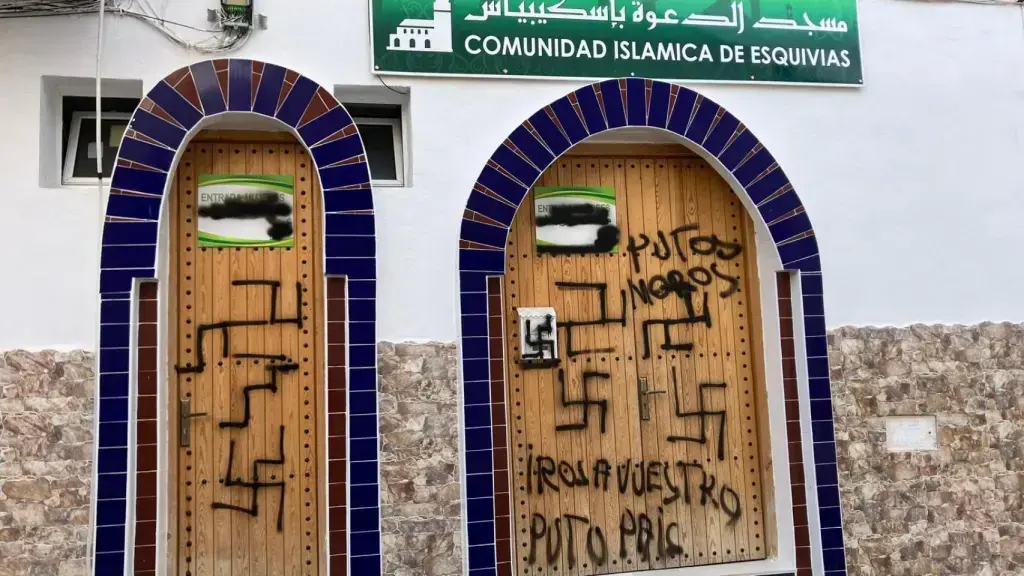 مسجد الدعوة بإسكيبياس
COMUNIDAD ISLAMICA DE ESQUIVIAS
ENTRADA
PUTOS
MOROS
IROS A VUESTRO
PUTO PAIS